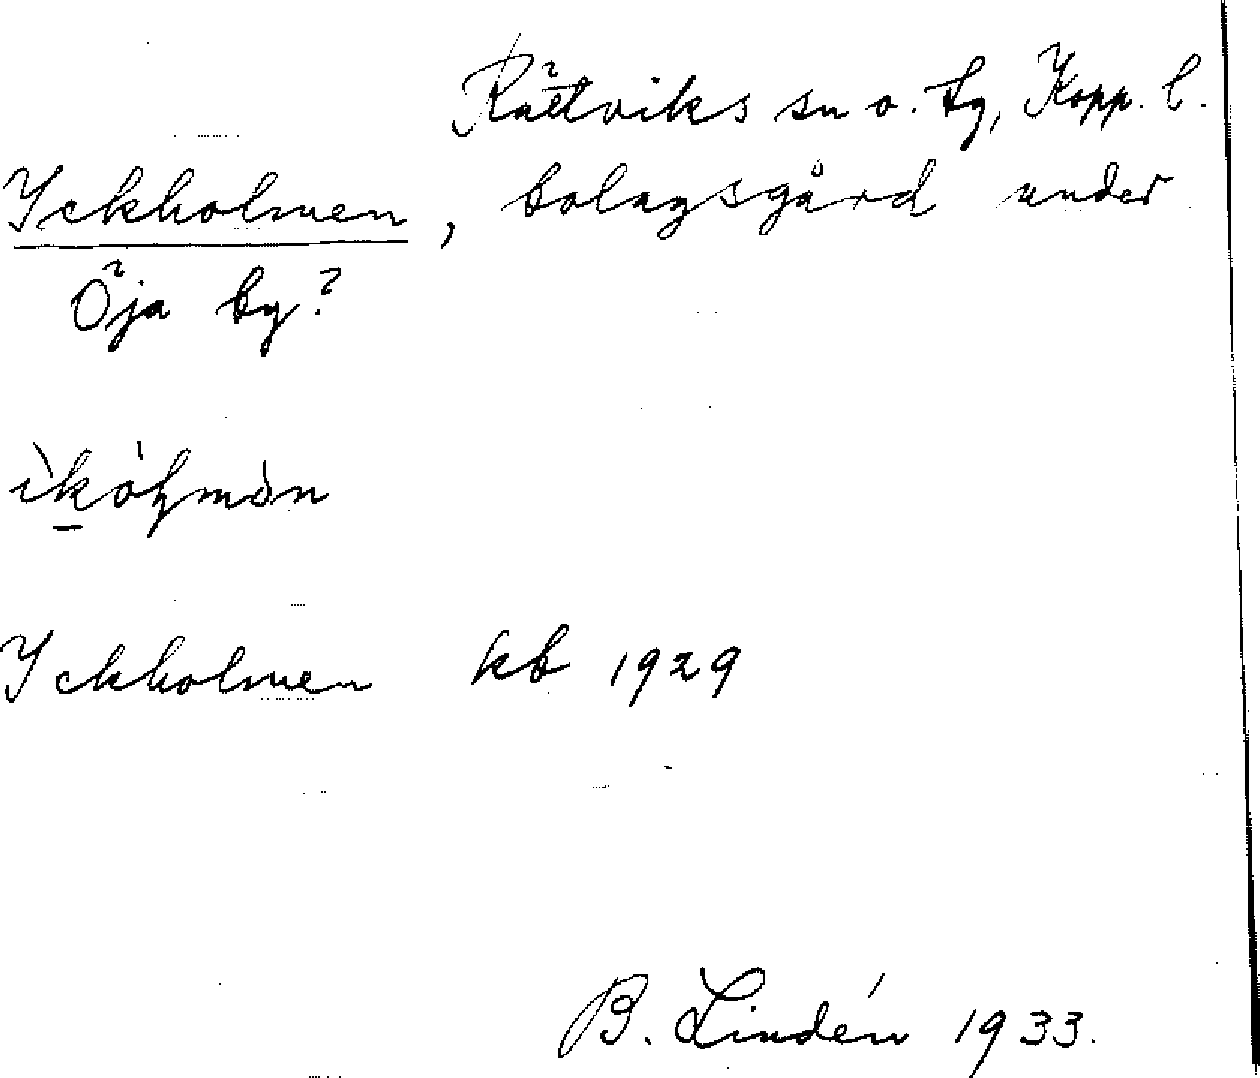 Rättviks sn o. by, Kopp. l.
Yckholmen, bolagsgård under
Öja by?
Yckholmen kb 1929
B. Lindén 1933.